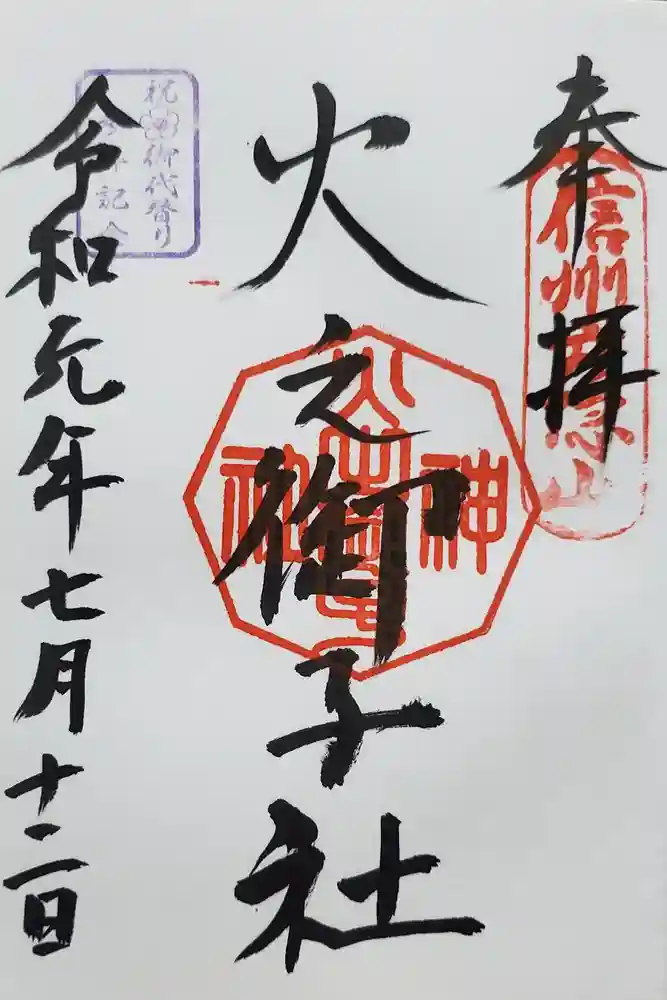 奉拝
信州戸隠山
火之御子社
神社
令和元年七月十二日
祝 御代替り
記念